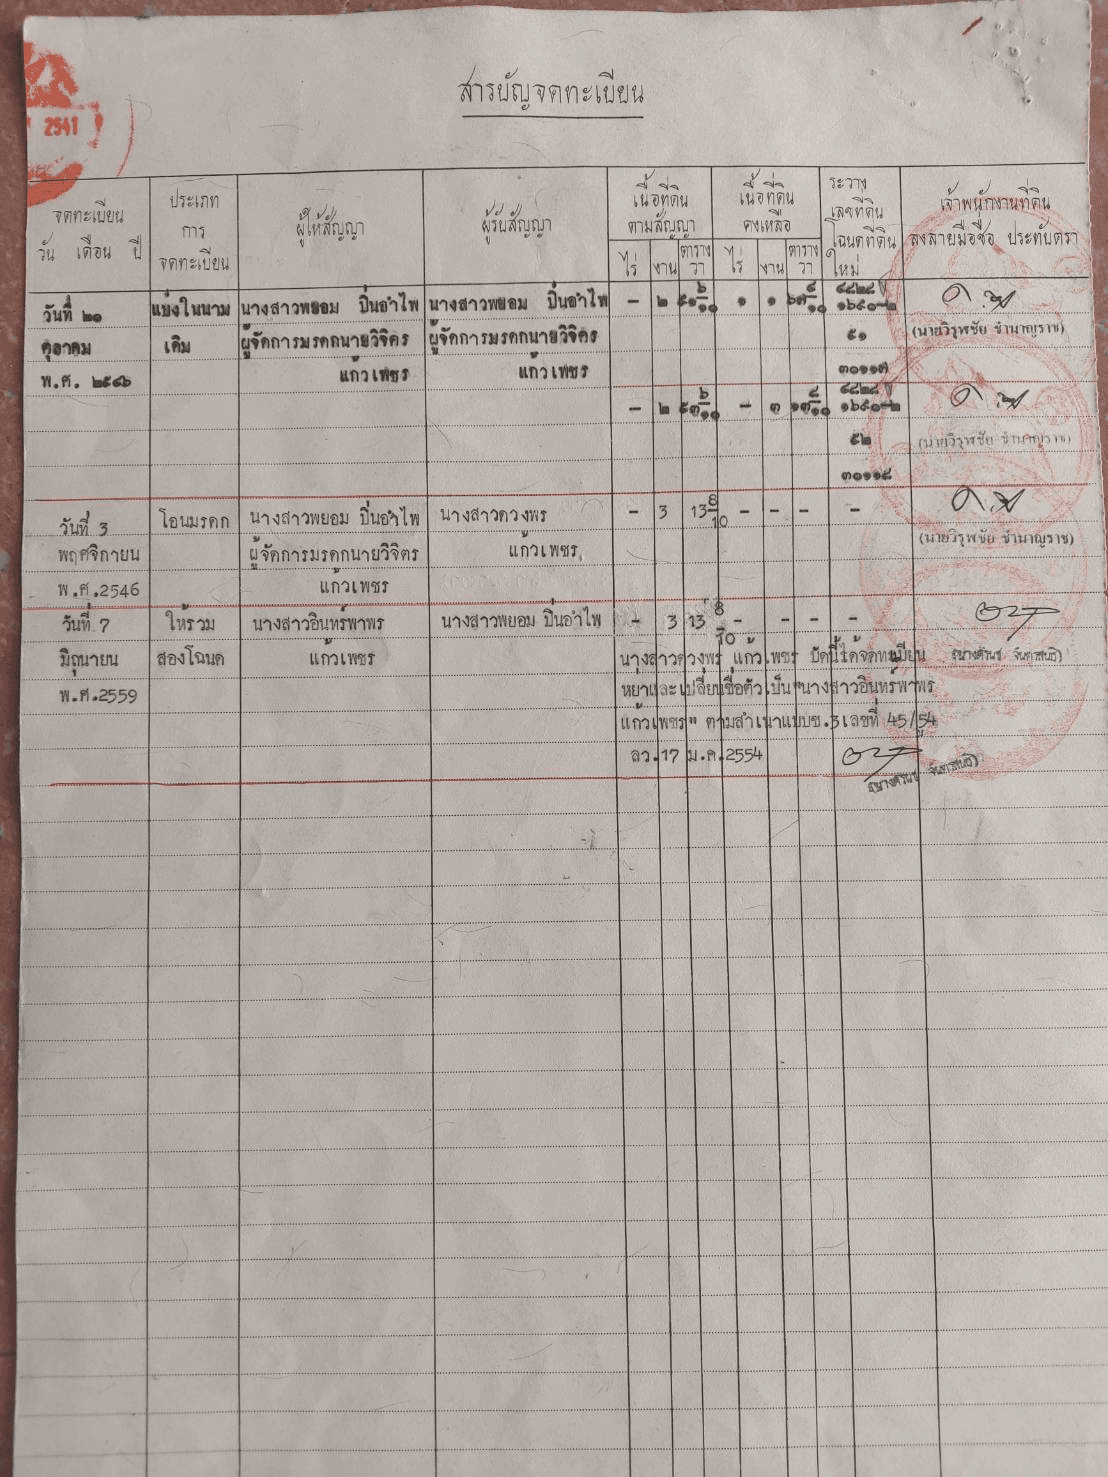 สารบัญจดทะเบียน
2541
จดทะเบียน
วัน เดือน ปี
ประเภท
การ
จดทะเบียน
ผู้ให้สัญญา
ผู้รับสัญญา
เนื้อที่ดิน
ตามสัญญา
ไร่ งาน ตาราง
วา
เนื้อที่ดิน
คงเหลือ
ไร่ งาน ตาราง
วา
ระวาง
เลขที่ดิน
โฉนดที่ดิน
ใหม่
เจ้าพนักงานที่ดิน
ลงลายมือชื่อ ประทับตรา
วันที่ ๒๐ แบ่งในนาม นางสาวพยอม ปิ่นอำไพ นางสาวพยอม ปิ่นอำไพ - ๒ ๑ ๑
ตุลาคม เดิม ผู้จัดการมรดกนายวิจิตร ผู้จัดการมรดกนายวิจิตร ๕๑ (นายวิรุฬชัย ชำนาญราช)
พ.ศ. ๒๕๔๖ แก้วเพชร แก้วเพชร ๓๐๑๑๗
- ๒ - ๓
๕๒ (นายวิรุฬชัย ชำนาญราช)
๓๐๑๑๘
วันที่ 3 โอนมรดก นางสาวพยอม ปิ่นอำไพ นางสาวดวงพร - 3 13 8/10 - - - -
พฤศจิกายน ผู้จัดการมรดกนายวิจิตร แก้วเพชร (นายวิรุฬชัย ชำนาญราช)
พ.ศ.2546 แก้วเพชร
วันที่ 7 ให้รวม นางสาวอินทร์พาพร นางสาวพยอม ปิ่นอำไพ - 3 13 8/10 - - - -
มิถุนายน สองโฉนด แก้วเพชร นางสาวดวงพร แก้วเพชร ปัจุนี้ได้จดทะเบียน
พ.ศ.2559 หย่าและเปลี่ยนชื่อตัวเป็น "นางสาวอินทร์พาพร
แก้วเพชร" ตามสำเนาแบบช.3 เลขที่ 45/54
ลว.17 ม.ค.2554